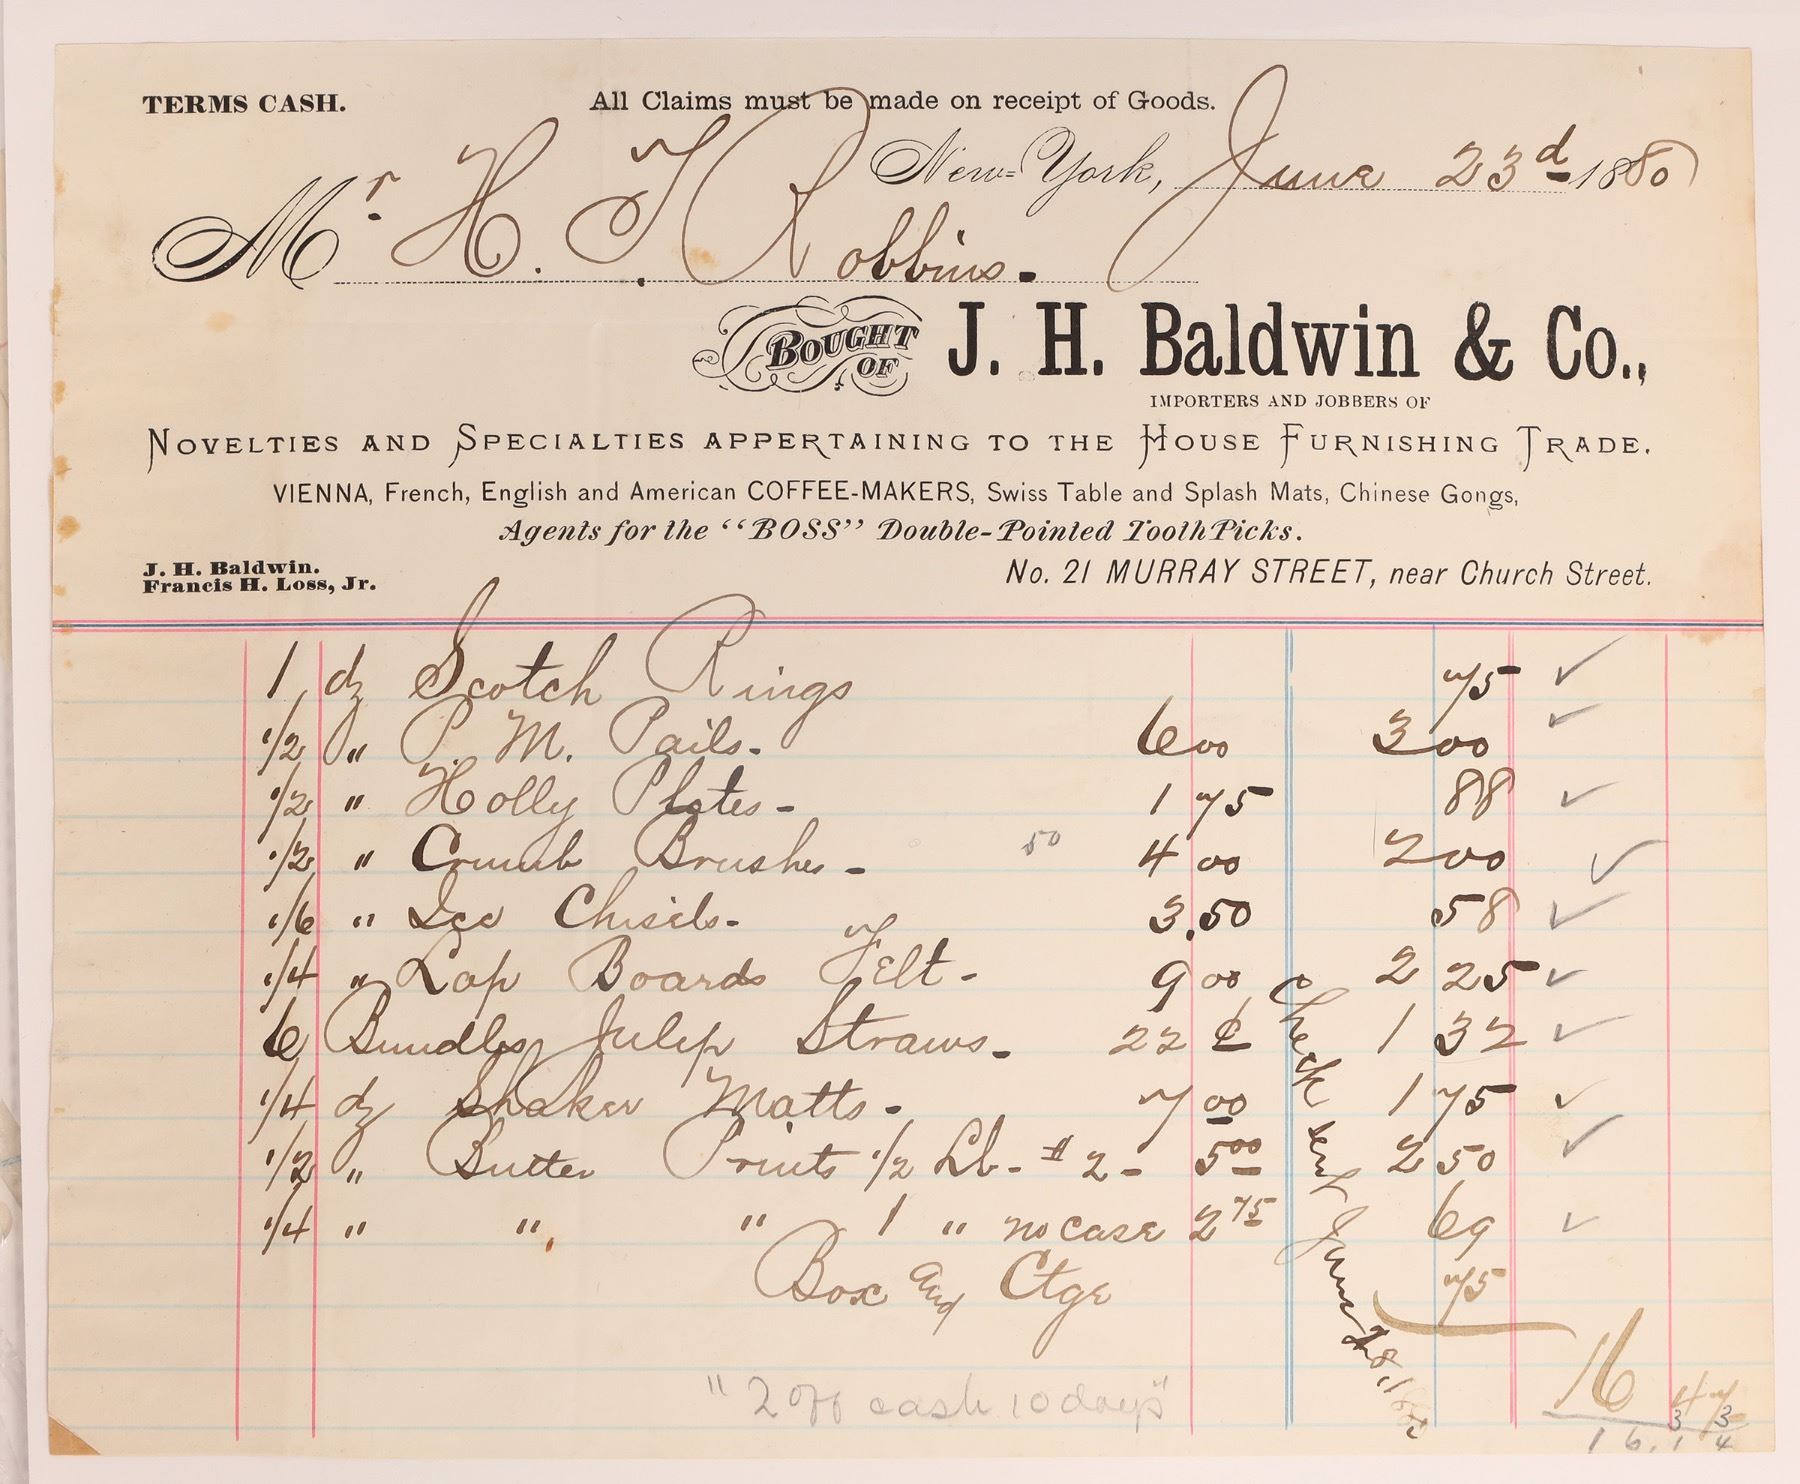 TERMS CASH.
All Claims must be made on receipt of Goods.
New-York, June 23d 1880
Mr H. T. Robbins.
BOUGHT OF J. H. Baldwin & Co.,
IMPORTERS AND JOBBERS OF
NOVELTIES AND SPECIALTIES APPERTAINING TO THE HOUSE FURNISHING TRADE.
VIENNA, French, English and American COFFEE-MAKERS, Swiss Table and Splash Mats, Chinese Gongs,
Agents for the “BOSS” Double-Pointed Tooth Picks.
J. H. Baldwin.
Francis H. Loss, Jr.
No. 21 MURRAY STREET, near Church Street.
1 dz Scotch Rings 75 ✓
1/2 " P. M. Pails - 6 00 3 00 ✓
1/2 " Holly Plates - 1 75 88 ✓
1/2 " Crumb Brushes - 50 4 00 2 00 ✓
1/6 " Ice Chisels - 3.50 58 ✓
1/4 " Lap Boards Felt - 9 00 2 25 ✓
6 Bundles Julep Straws - 22 ¢ 1 32 ✓
1/4 dz Shaker Matts - 7 00 1 75 ✓
1/2 " Butter Prints 1/2 Lb - # 2 - 5 00 2 50 ✓
1/4 " " " 1 " no case 2 75 69 ✓
Box and Ctge 75
16 47
33
16.14
Check sent June 28,
"2 off cash 10 days"